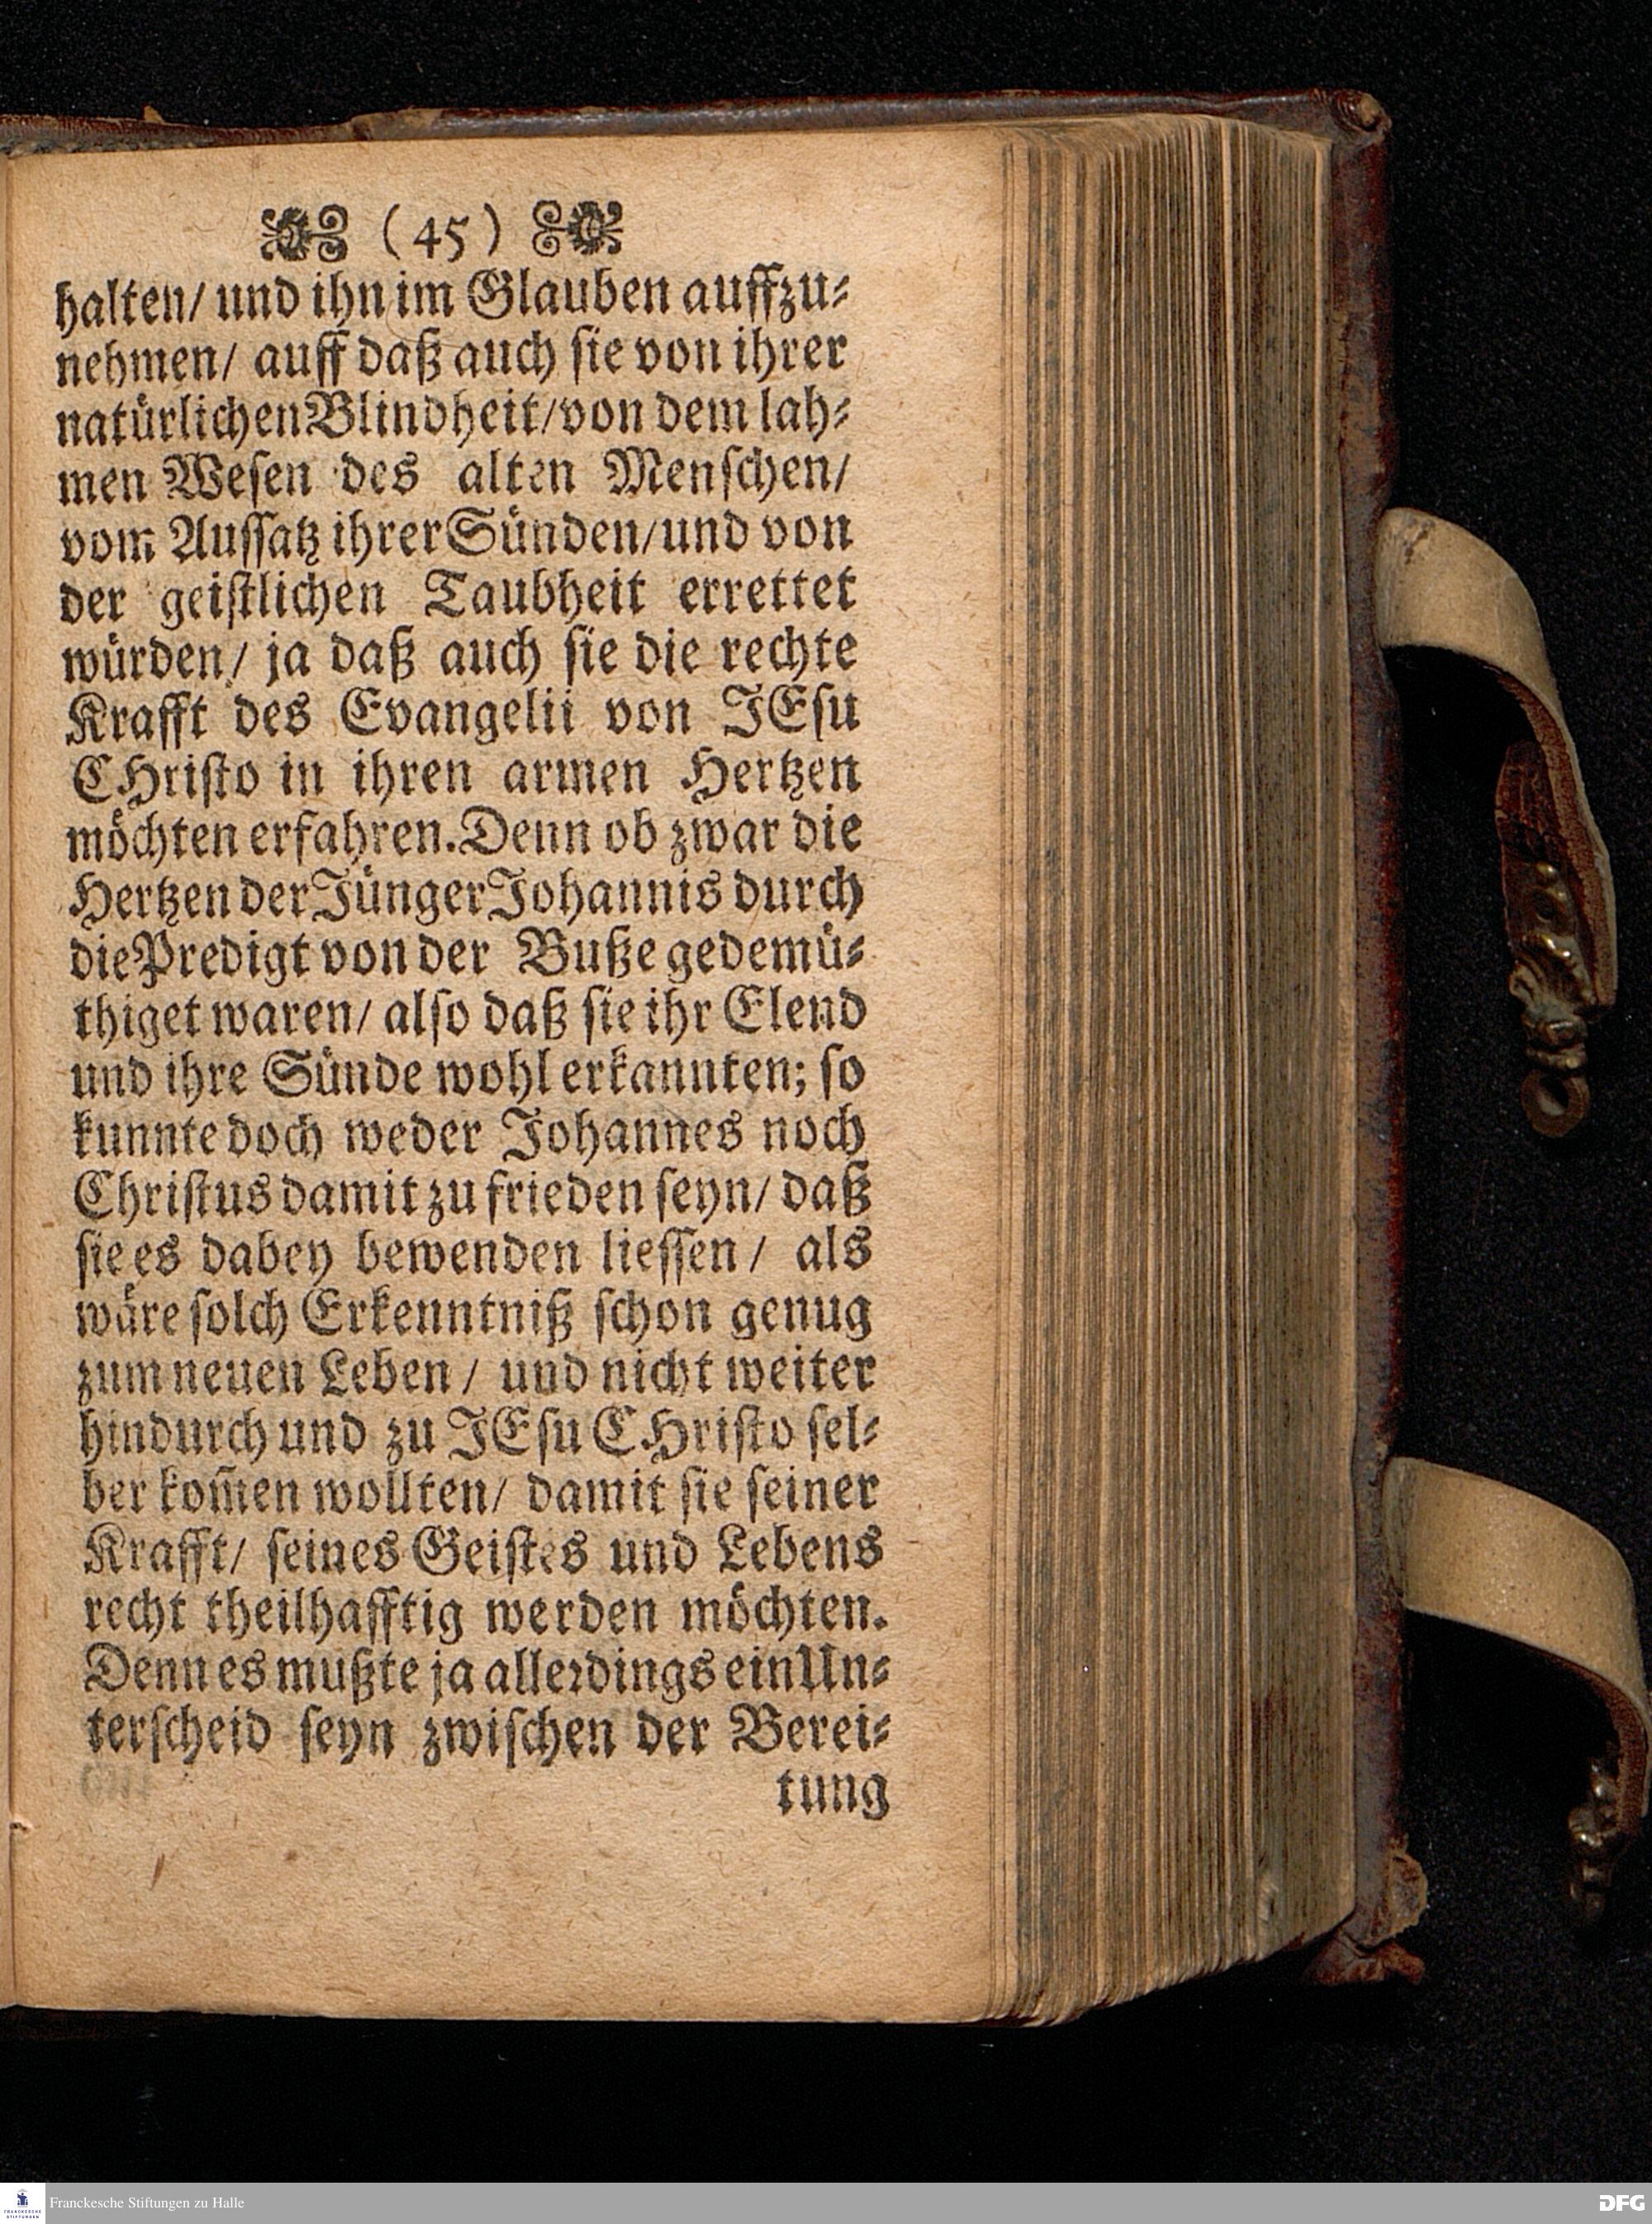 (45)
halten/ und ihn im Glauben auffzu⸗
nehmen/ auff daß auch ſie von ihrer
natürlichen Blindheit/ von dem lah⸗
men Weſen des alten Menſchen/
vom Auſſatz ihrer Sünden/ und von
der geiſtlichen Taubheit errettet
würden/ ja daß auch ſie die rechte
Krafft des Evangelii von JEſu
CHriſto in ihren armen Hertzen
möchten erfahren. Denn ob zwar die
Hertzen der Jünger Johannis durch
die Predigt von der Buße gedemü⸗
thiget waren/ alſo daß ſie ihr Elend
und ihre Sünde wohl erkannten; ſo
kunnte doch weder Johannes noch
Chriſtus damit zu frieden ſeyn/ daß
ſie es dabey bewenden lieſſen/ als
wäre ſolch Erkenntniß ſchon genug
zum neuen Leben/ und nicht weiter
hindurch und zu JEſu CHriſto ſel⸗
ber kom̃en wollten/ damit ſie ſeiner
Krafft/ ſeines Geiſtes und Lebens
recht theilhafftig werden möchten.
Denn es mußte ja allerdings ein Un⸗
terſcheid ſeyn zwiſchen der Berei⸗
tung
FRANCKESCHE STIFTUNGEN
Franckesche Stiftungen zu Halle
DFG